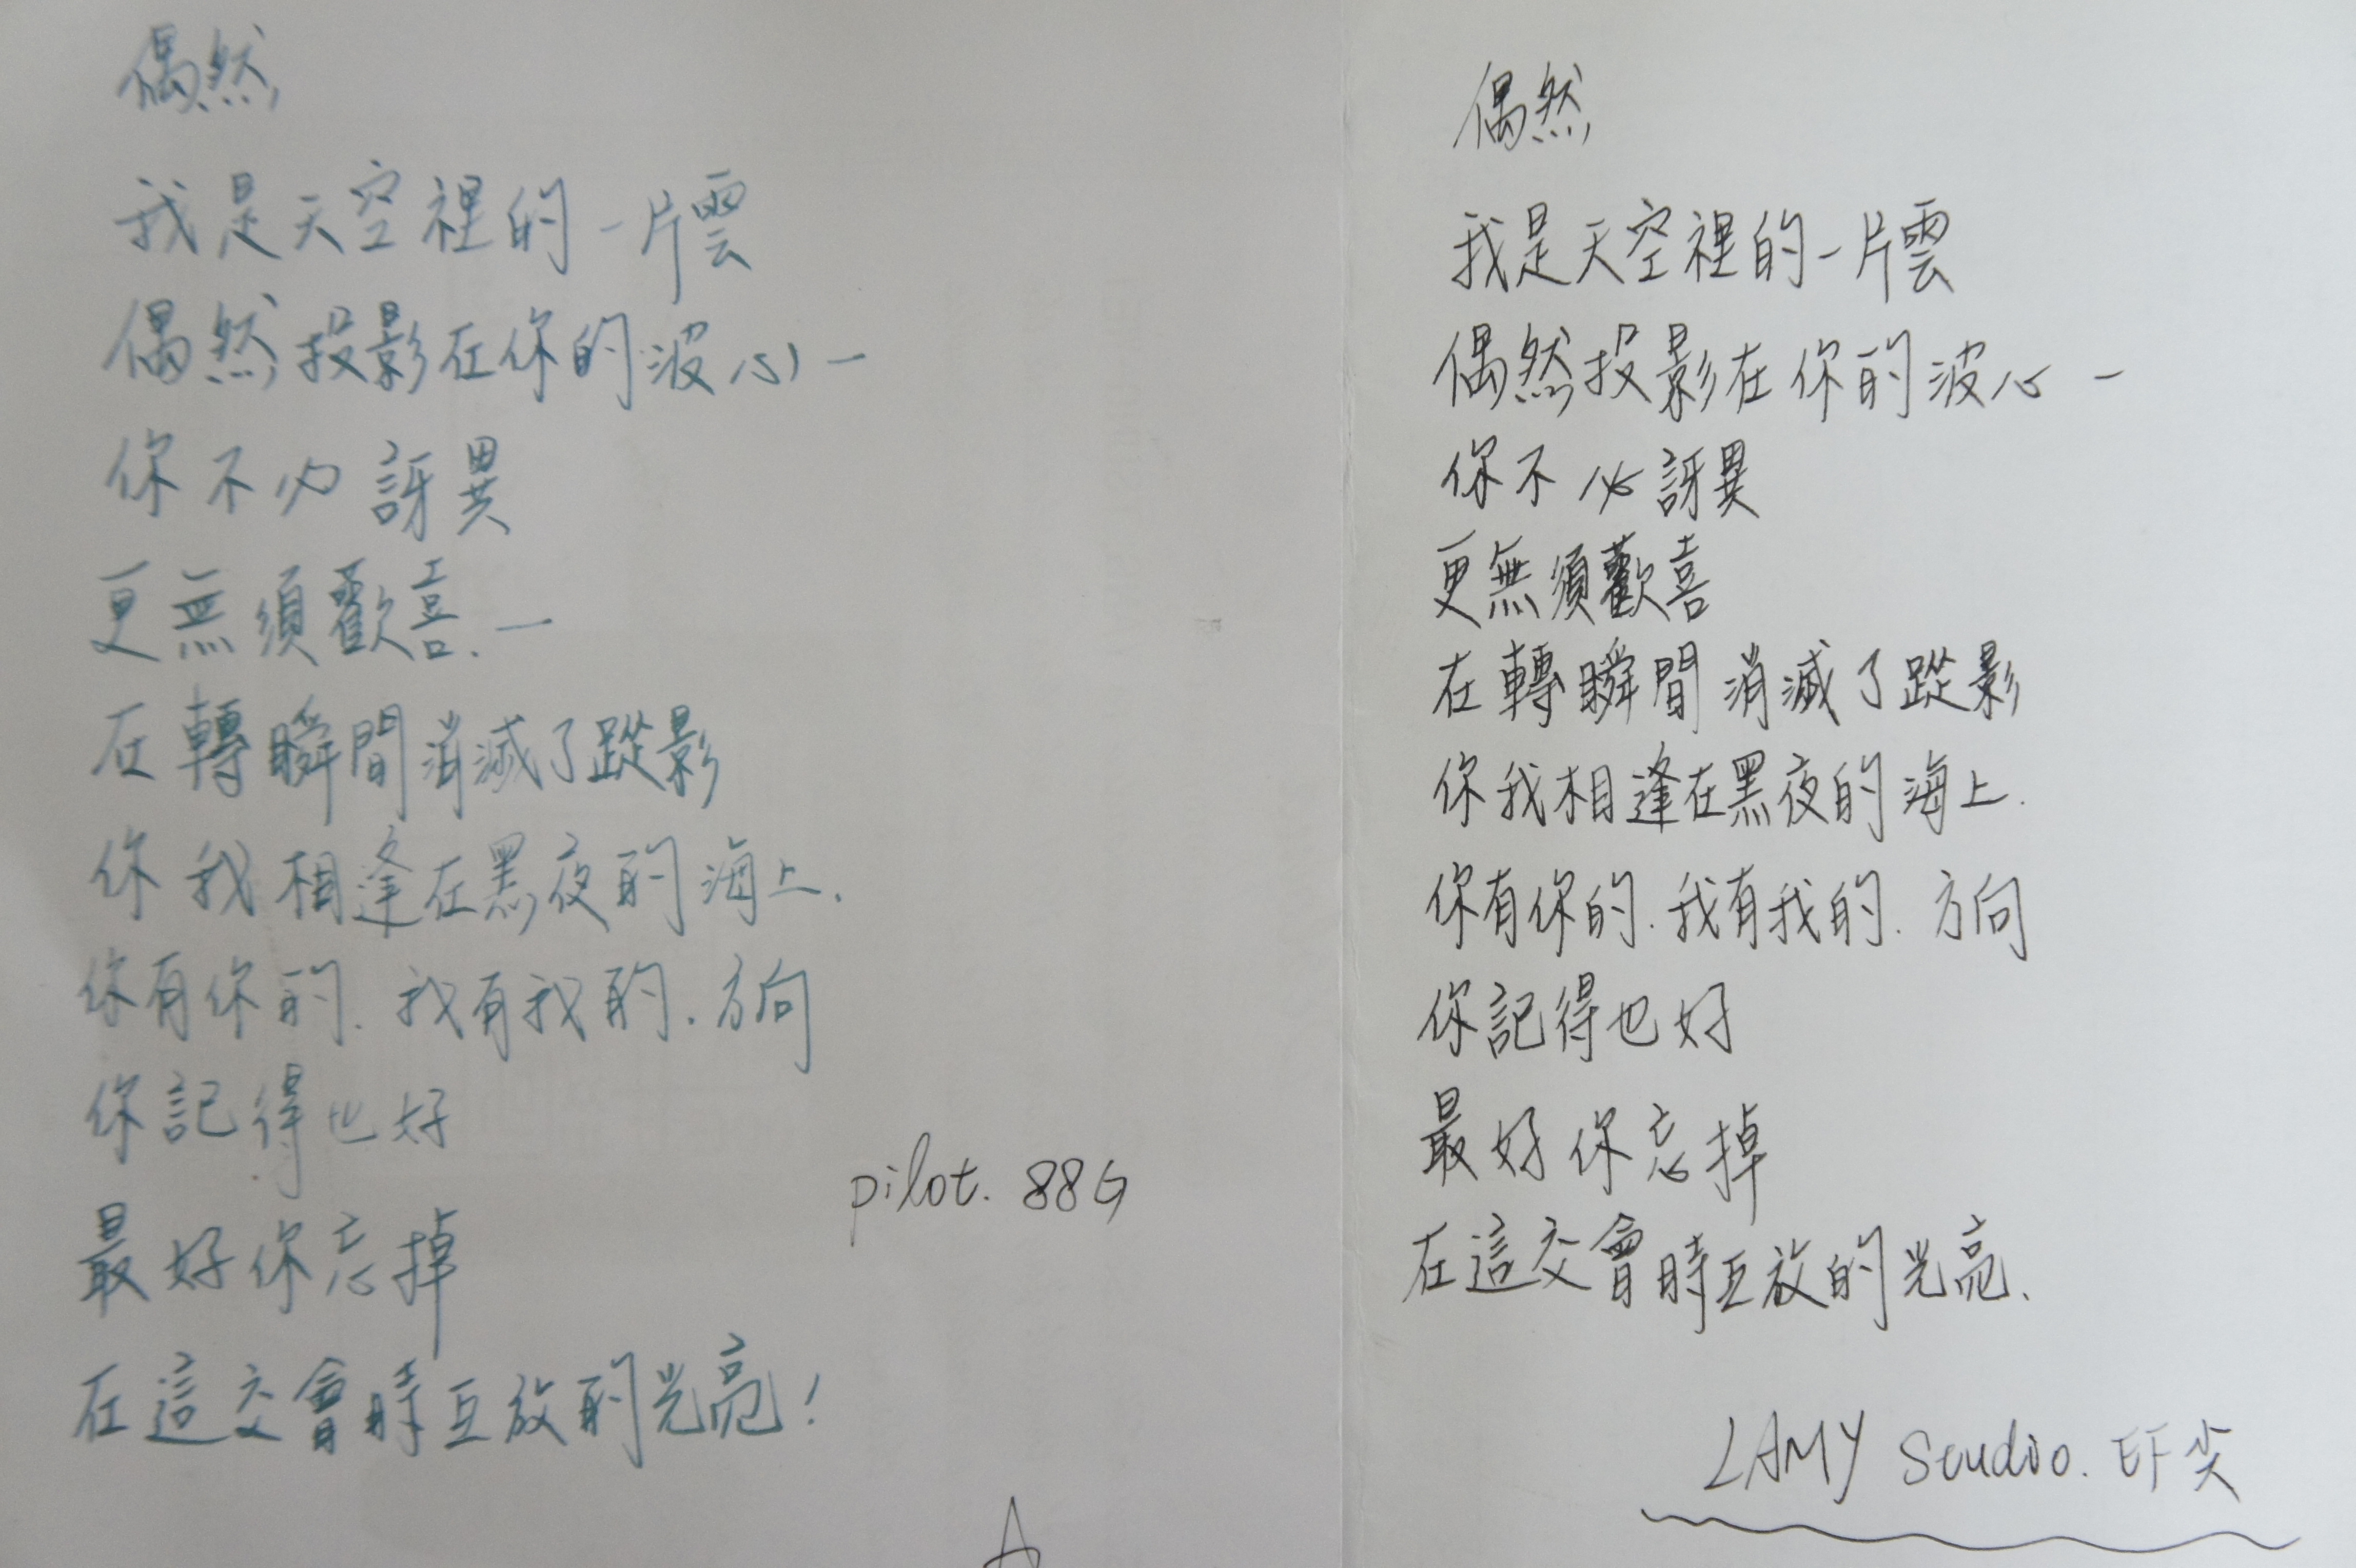 偶然
我是天空裡的一片雲
偶然投影在你的波心一
你不必訝異
更無須歡喜.一
在轉瞬間消滅了蹤影
你我相逢在黑夜的海上.
你有你的.我有我的.方向
你記得也好
最好你忘掉
在這交會時互放的光亮!
pilot. 88G
A
偶然
我是天空裡的一片雲
偶然投影在你的波心一
你不必訝異
更無須歡喜
在轉瞬間消滅了蹤影
你我相逢在黑夜的海上.
你有你的.我有我的.方向
你記得也好
最好你忘掉
在這交會時互放的光亮.
LAMY Studio. EF尖